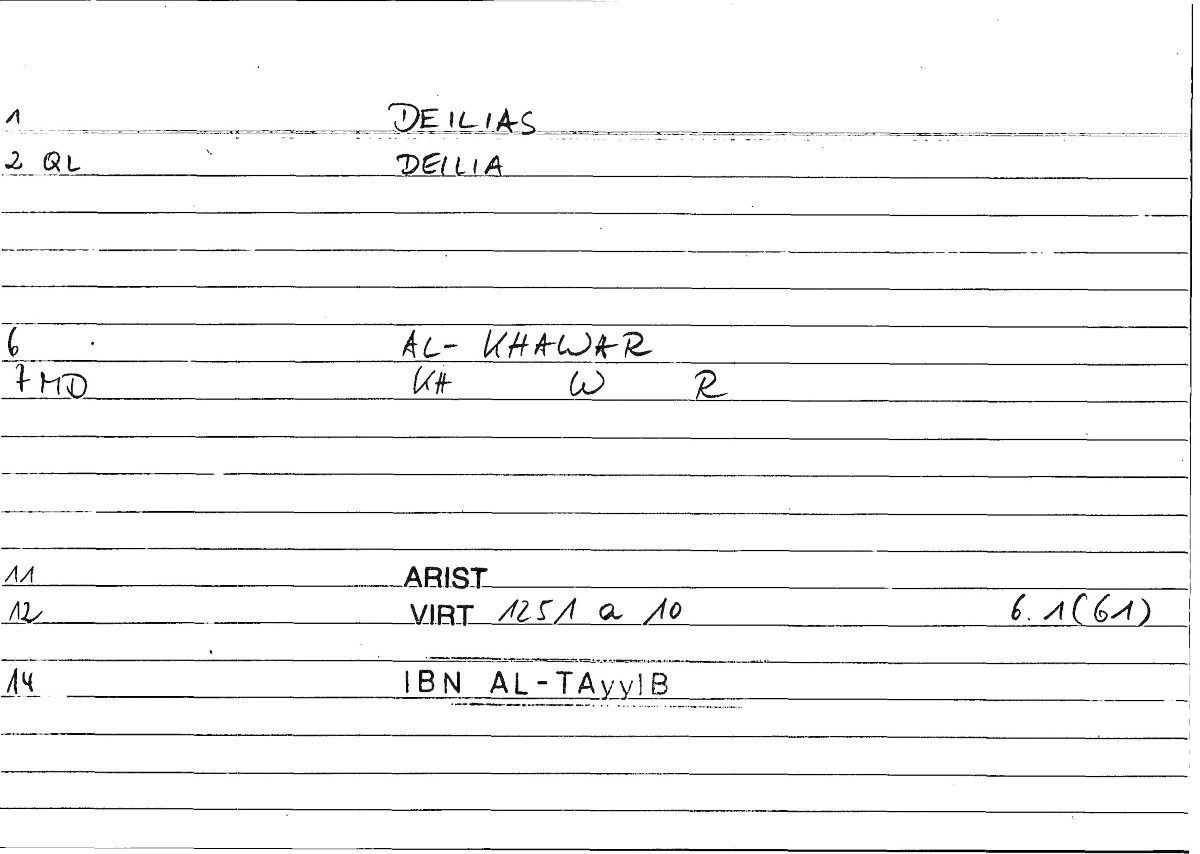 1 DEILIAS
2 QL DEILIA
6 AL- KHAWAR
7 MD KH W R
11 ARIST
12 VIRT 1251 a 10 6. 1(61)
14 IBN AL-TAyyIB